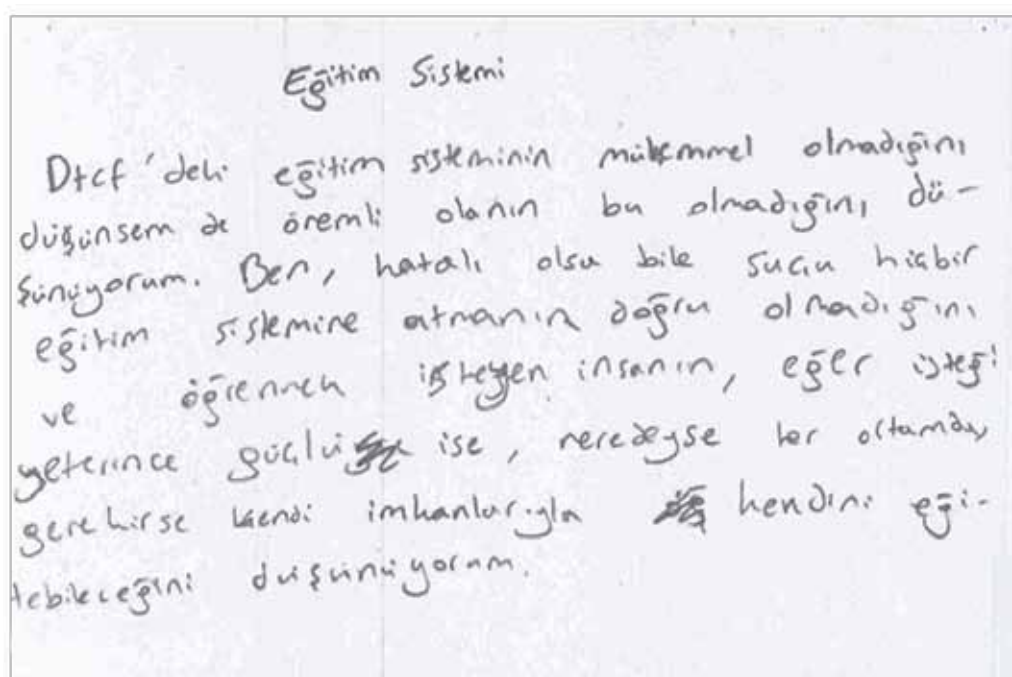 Eğitim Sistemi
Dtcf'deki eğitim sisteminin mükemmel olmadığını
düşünsem de önemli olanın bu olmadığını dü-
şünüyorum. Ben, hatalı olsa bile suçu hiçbir
eğitim sistemine atmanın doğru olmadığını
ve öğrenmek isteyen insanın, eğer isteği
yeterince güçlü ise, neredeyse her ortamda,
gerekirse kendi imkanlarıyla kendini eği-
tebileceğini düşünüyorum.